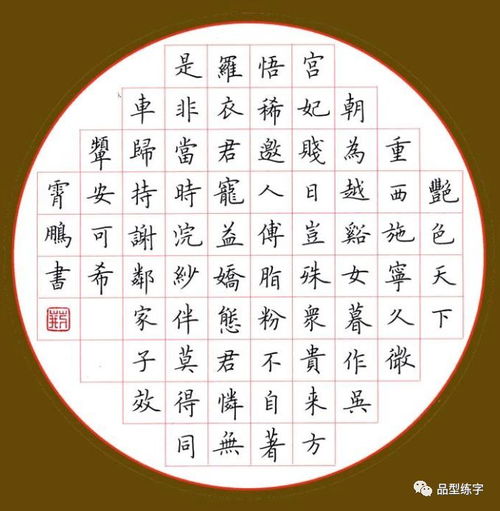 艷色天下
重西施寧久微
朝為越谿女暮作吳
宮妃賤日豈殊衆貴来方
悟稀邀人傅脂粉不自著
羅衣君寵益嬌態君憐無
是非當時浣紗伴莫得同
車歸持謝鄰家子效
顰安可希
霄鵬書
品型练字